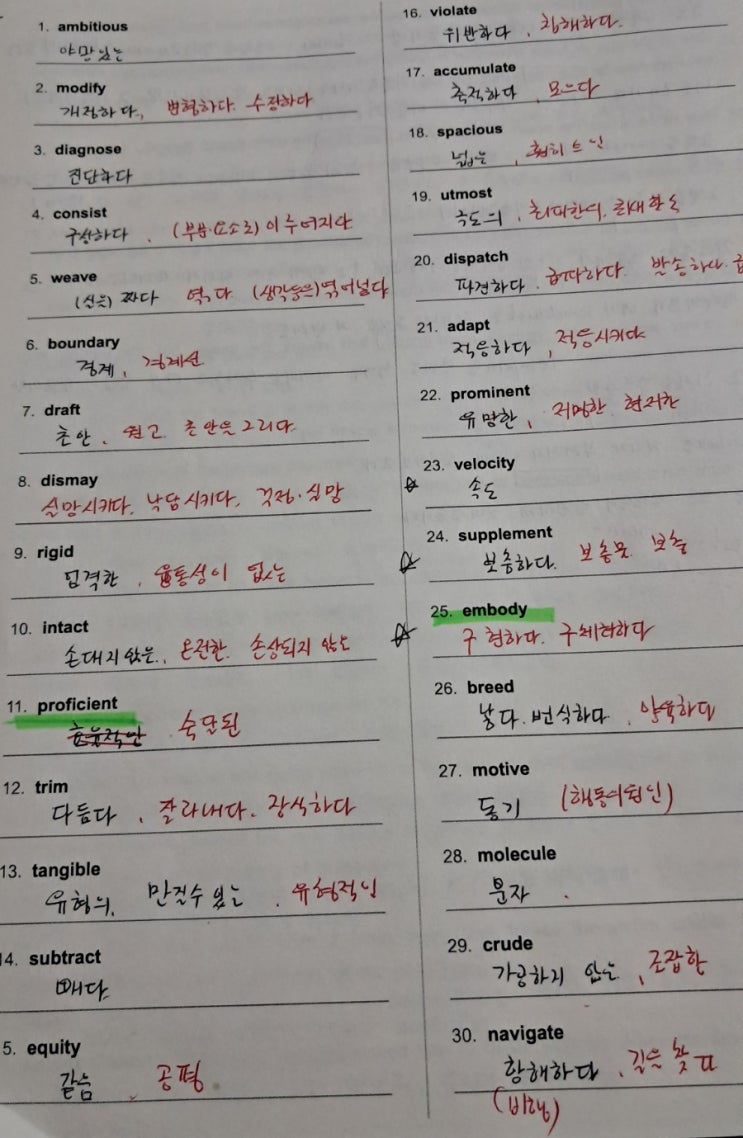 1. ambitious
야망있는
2. modify
개정하다, 변형하다. 수정하다
3. diagnose
진단하다
4. consist
구상하다. (부분·요소로)이루어지다
5. weave
(신을) 짜다 엮다. (생각등을)엮어넣다
6. boundary
경계, 경계선
7. draft
초안, 원고. 초안을 그리다.
8. dismay
실망시키다, 낙담시키다, 걱정·실망
9. rigid
엄격한, 융통성이 없는
10. intact
손대지 않은, 온전한. 손상되지 않은
11. proficient
숙단된
12. trim
다듬다, 잘라내다. 장식하다
13. tangible
유형의, 만질수 있는, 유형적인
4. subtract
빼다
5. equity
같음, 공평.
16. violate
위반하다, 침해하다.
17. accumulate
축적하다, 모으다
18. spacious
넓은,
19. utmost
극도의, 최대한의, 최대한도
20. dispatch
파견하다. 급파하다. 발송하다. 급
21. adapt
적응하다, 적응시키다
22. prominent
유명한, 저명한 현저한
23. velocity
속도
24. supplement
보충하다. 보충물. 보충
25. embody
구현하다. 구체화하다
26. breed
낳다. 번식하다, 양육하다
27. motive
동기 (행동의원인)
28. molecule
분자.
29. crude
가공하지 않는, 조잡한
30. navigate
항해하다, 길을 찾다
(비행)